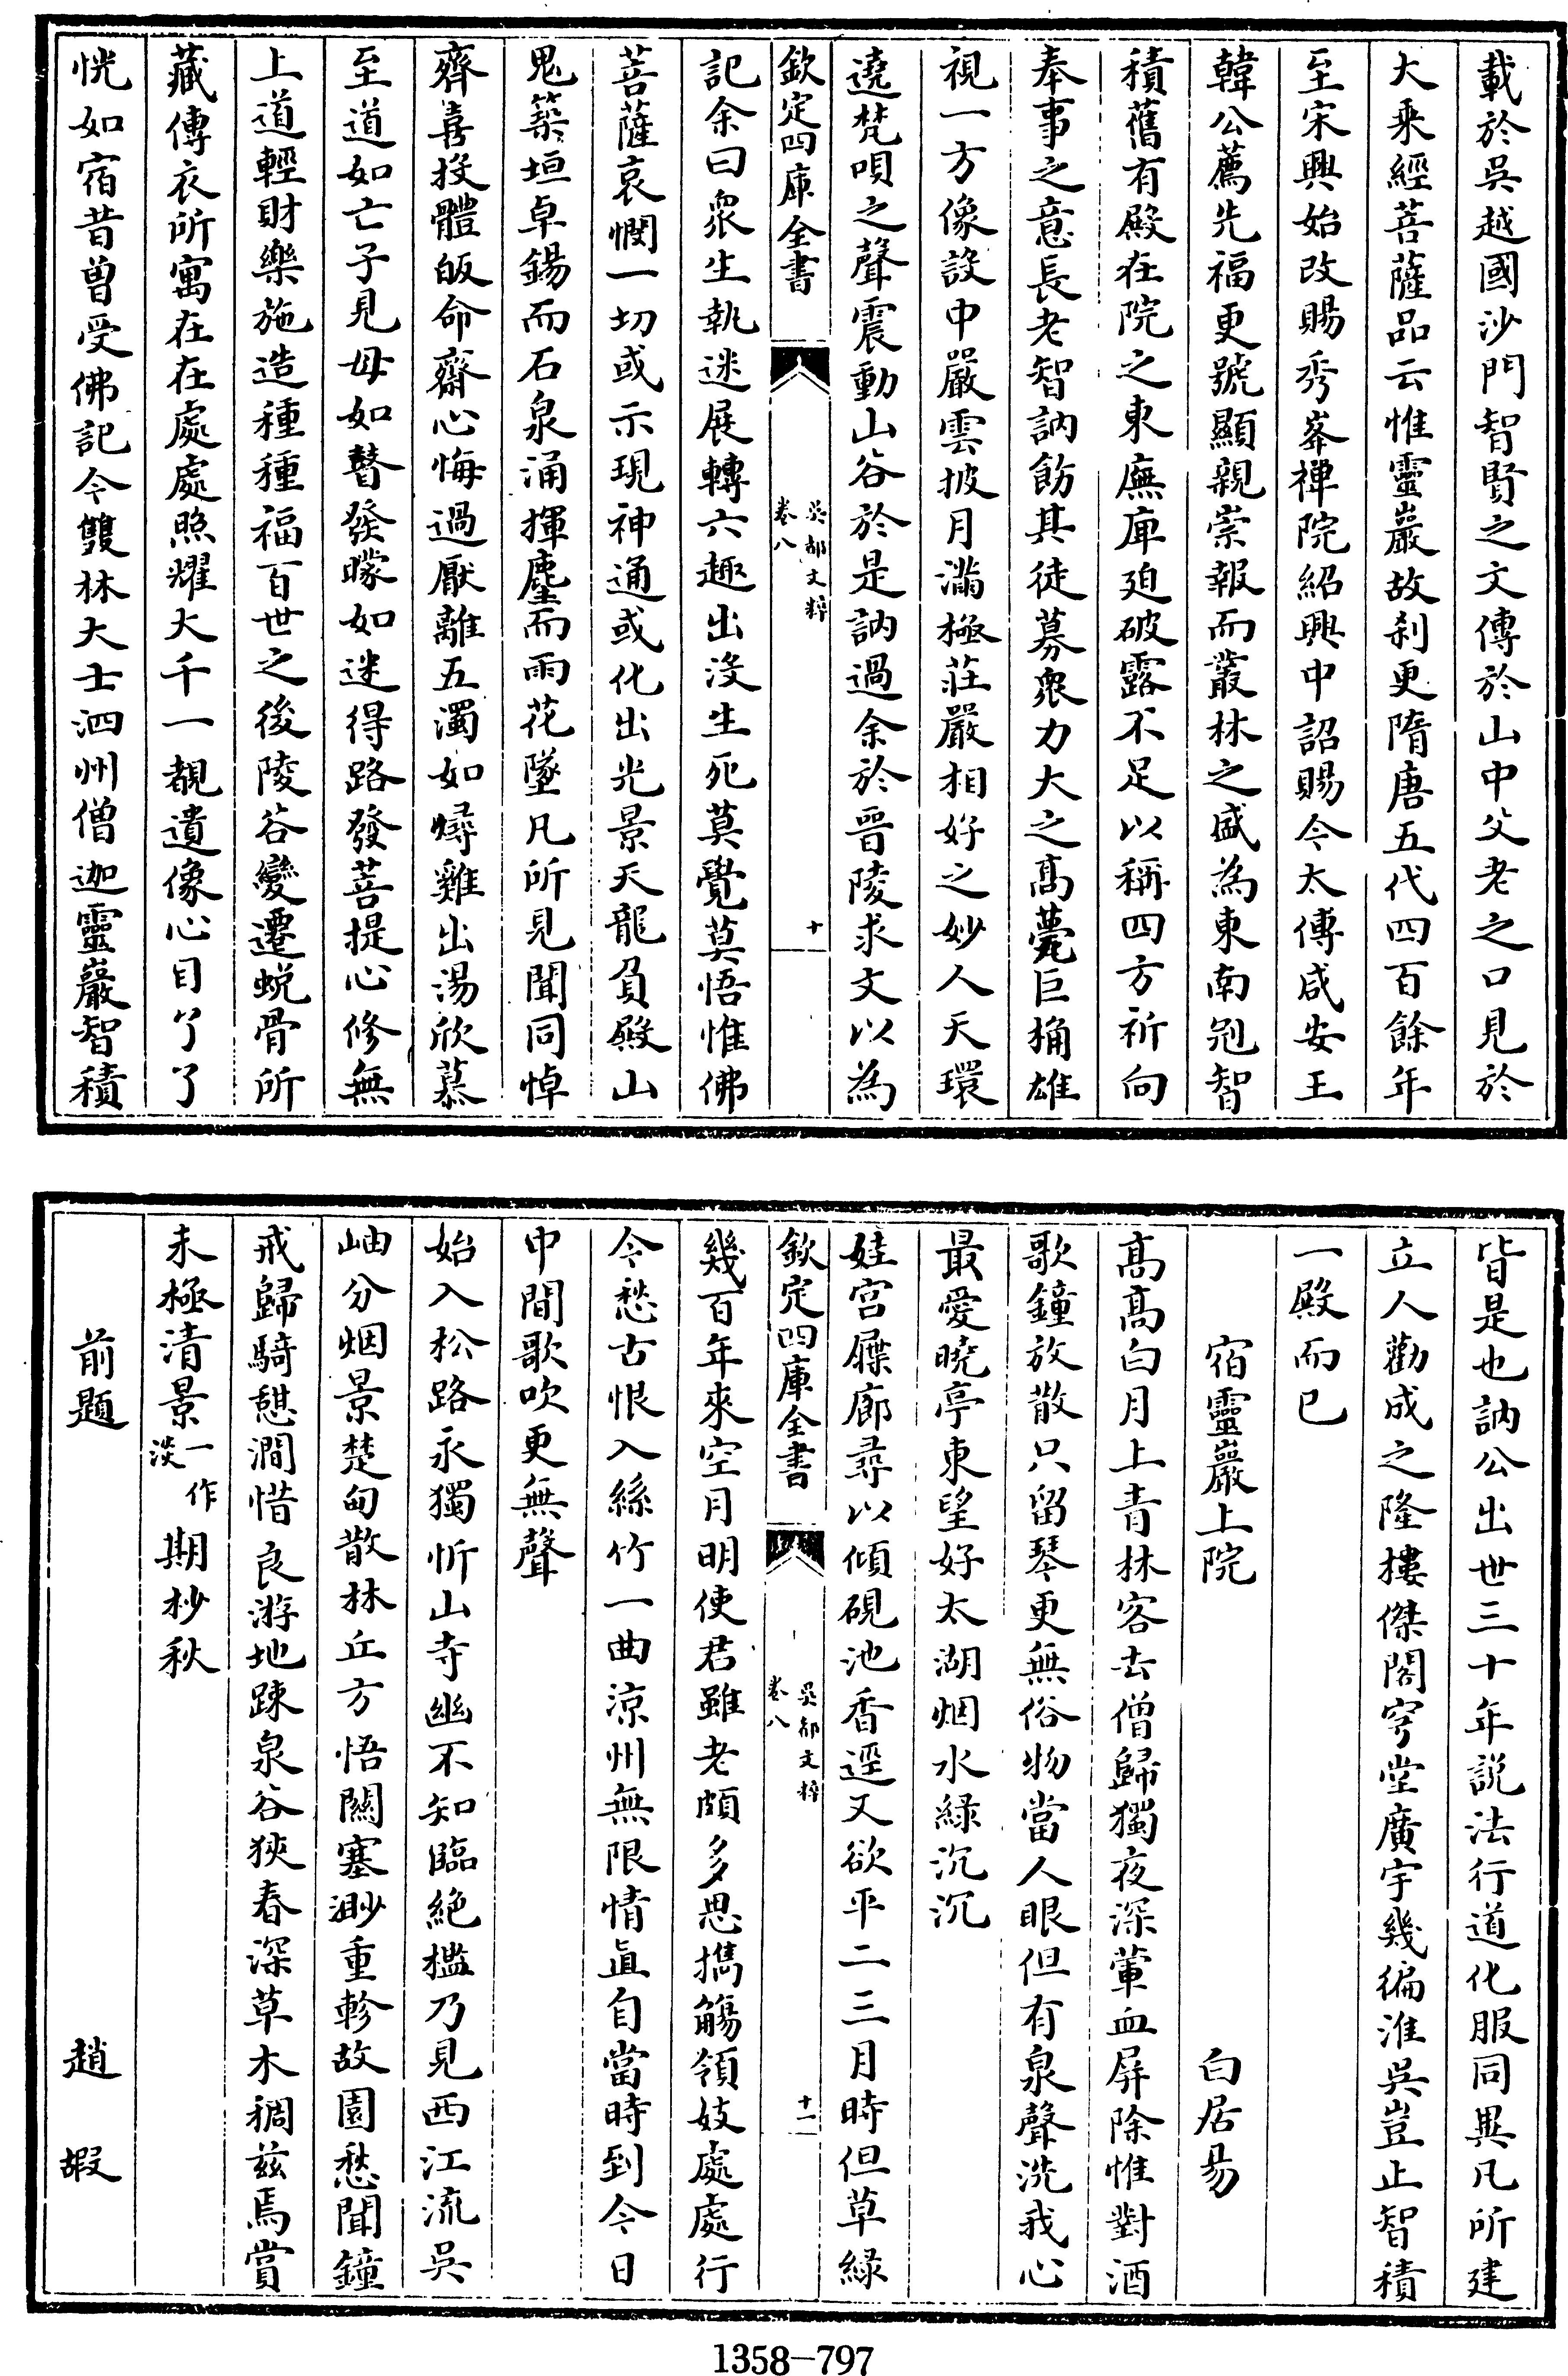 載於吳越國沙門智賢之文傳於山中父老之口見於
大乘經菩薩品云惟靈巖故刹更隋唐五代四百餘年
至宋興始改賜秀峯禪院紹興中詔賜今太傅咸安王
韓公薦先福更號顯親崇報而叢林之盛為東南冠智
積舊有殿在院之東廡庫廹破露不足以稱四方祈向
奉事之意長老智訥飭其徒募衆力大之髙甍巨桷雄
視一方像設中嚴雲披月滿極莊嚴相好之妙人天環
遶梵唄之聲震動山谷於是訥過余於晉陵求文以為
欽定四庫全書
吳都文粹
卷八
十
記余曰衆生執迷展轉六趣出沒生死莫覺莫悟惟佛
菩薩哀憫一切或示現神通或化出光景天龍負殿山
鬼築垣卓錫而石泉涌揮麈而雨花墜凡所見聞同悼
齊喜投體皈命齋心悔過厭離五濁如燖雞出湯欣慕
至道如亡子見母如瞽發矇如迷得路發菩提心修無
上道輕財樂施造種種福百世之後陵谷變遷蛻骨所
藏傳衣所寓在在處處照耀大千一覩遺像心目了了
恍如宿昔曽受佛記今雙林大士泗州僧迦靈巖智積
皆是也訥公出世三十年説法行道化服同異凡所建
立人勸成之隆樓傑閣穹堂廣宇幾徧淮吳豈止智積
一殿而已
宿靈巖上院
白居易
髙髙白月上青林客去僧歸獨夜深葷血屏除惟對酒
歌鐘放散只留琴更無俗物當人眼但有泉聲洗我心
最愛曉亭東望好太湖烟水緑沉沉
娃宫屧廊尋以傾硯池香逕又欲平二三月時但草緑
欽定四庫全書
吳都文粹
卷八
十一
幾百年來空月明使君雖老頗多思攜觴領妓處處行
今愁古恨入絲竹一曲涼州無限情直自當時到今日
中間歌吹更無聲
始入松路永獨忻山寺幽不知臨絶檻乃見西江流吳
岫分烟景楚甸散林丘方悟關塞渺重軫故園愁聞鐘
戒歸騎憩澗惜良游地疎泉谷狹春深草木稠兹焉賞
未極清景一作淡期杪秋
前題
趙嘏
1358-797